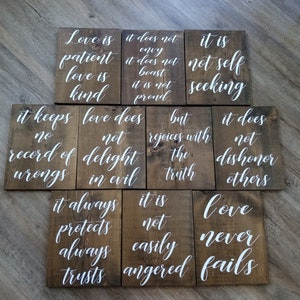 Love is
patient
love is
kind
it does not
envy
it does not
boast
it is not
proud
it is
not self
seeking
it keeps
no
record of
wrongs
love does
not
delight
in evil
but
rejoices with
the
truth
it does
not
dishonor
others
it always
protects
always
trusts
it is
not
easily
angered
love
never
fails